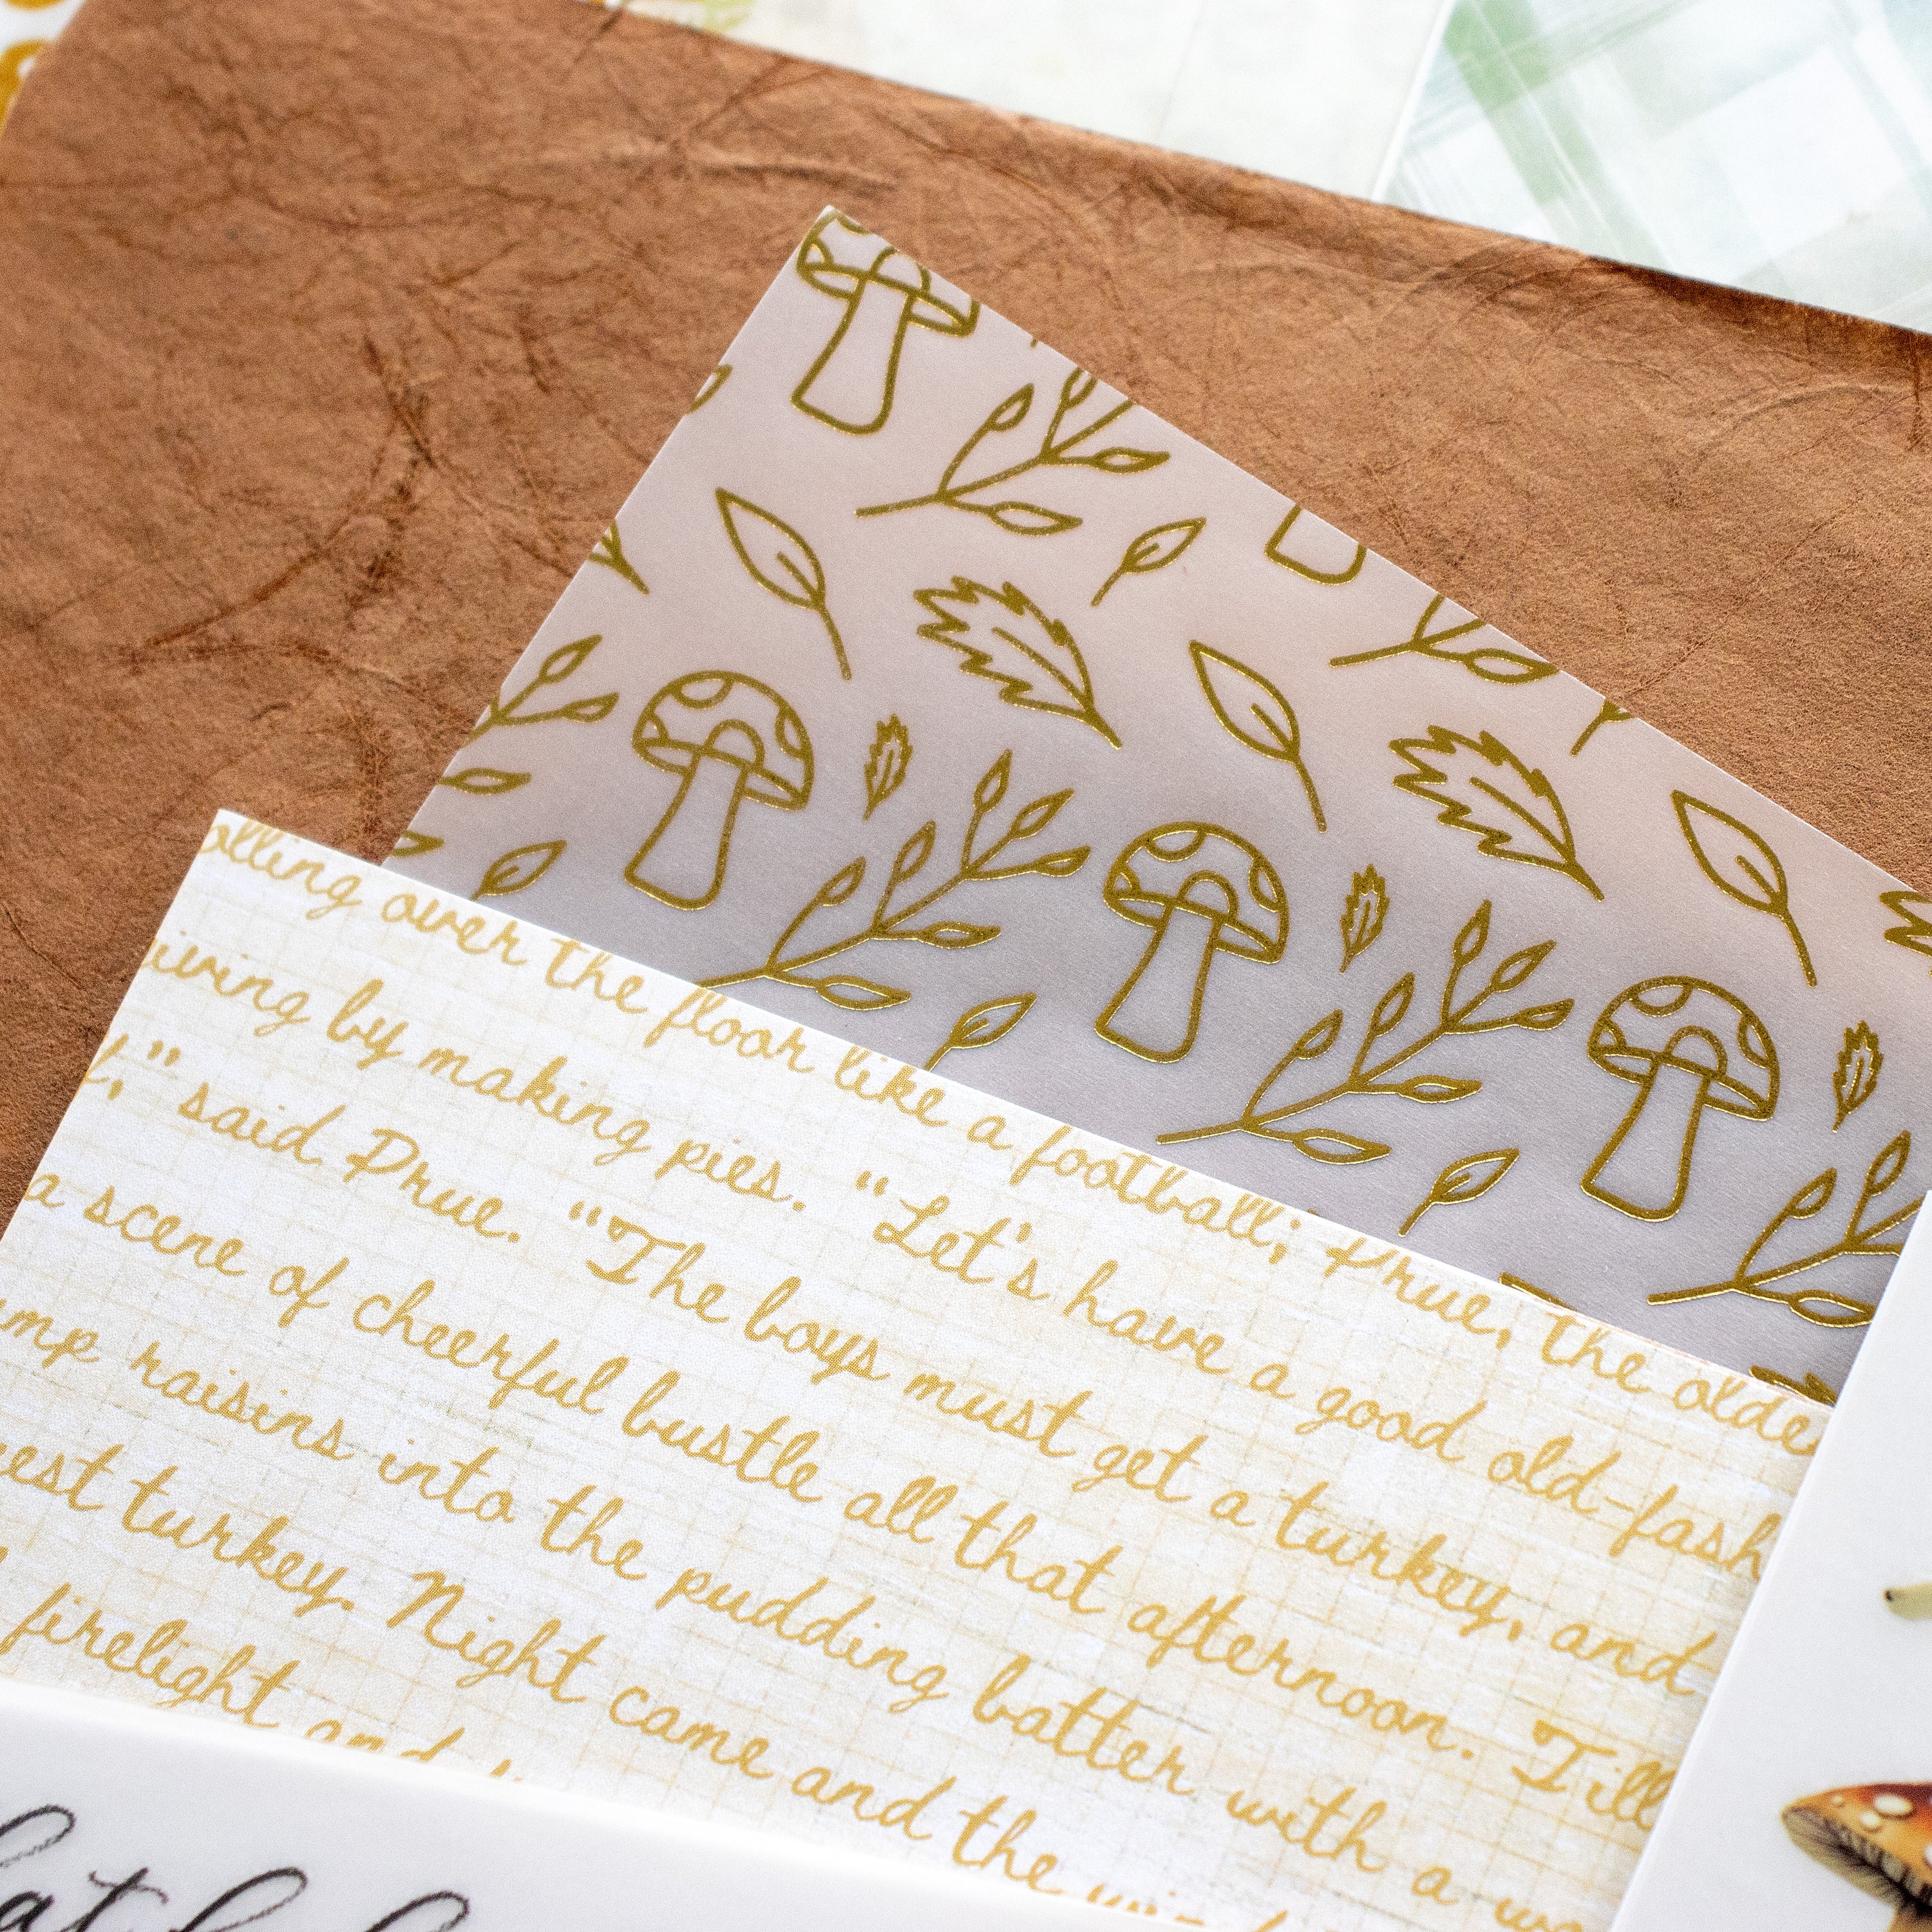 olling over the floor like a football; Prue, the olde
iving by making pies. "Let's have a good old-fash
," said Prue. "The boys must get a turkey, and
a scene of cheerful bustle all that afternoon. Till
ump raisins into the pudding batter with a wo
est turkey. Night came and the
firelight and